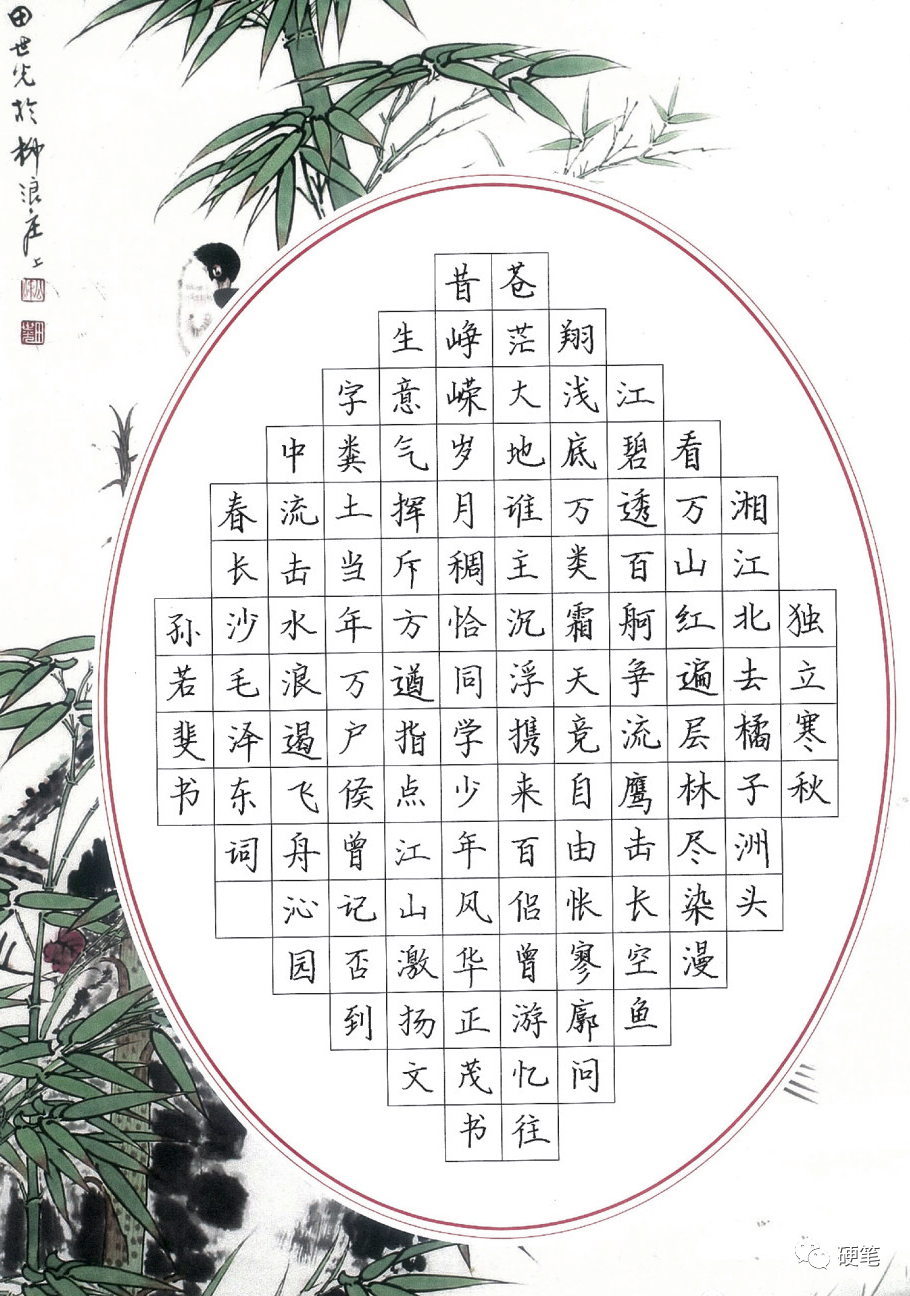 独立寒秋
湘江北去橘子洲头
看万山红遍层林尽染漫
江碧透百舸争流鹰击长空鱼
翔浅底万类霜天竞自由怅寥廓问
苍茫大地谁主沉浮携来百侣曾游忆往
昔峥嵘岁月稠恰同学少年风华正茂书
生意气挥斥方遒指点江山激扬文
字粪土当年万户侯曾记否到
中流击水浪遏飞舟沁园
春长沙毛泽东词
孙若斐书
田世光於柳浪庄上
硬笔